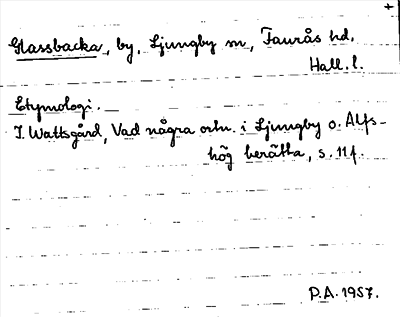 Glassbacka, by, Ljungby sn, Faurås hd.
Hall. l.
Etymologi. —
I. Wattsgård, Vad några ortn. i Ljungby o. Alfs-
hög berätta, s. 11 f.
P.A. 1957.